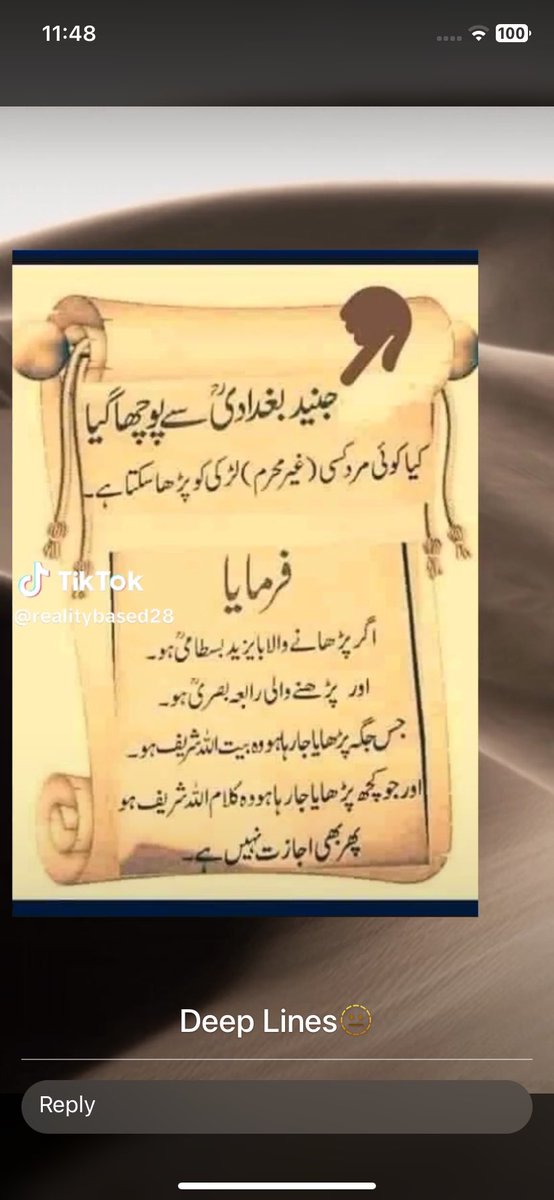 11:48
100
جنید بغدادیؒ سے پوچھا گیا
کیا کوئی مرد کسی (غیر محرم) لڑکی کو پڑھا سکتا ہے۔
فرمایا
TikTok
@realitybased28
اگر پڑھانے والا بایزید بسطامیؒ ہو۔
اور پڑھنے والی رابعہ بصریؒ ہو۔
جس جگہ پڑھایا جا رہا ہو وہ بیت اللہ شریف ہو۔
اور جو کچھ پڑھایا جا رہا ہو وہ کلام اللہ شریف ہو
پھر بھی اجازت نہیں ہے۔
Deep Lines
Reply